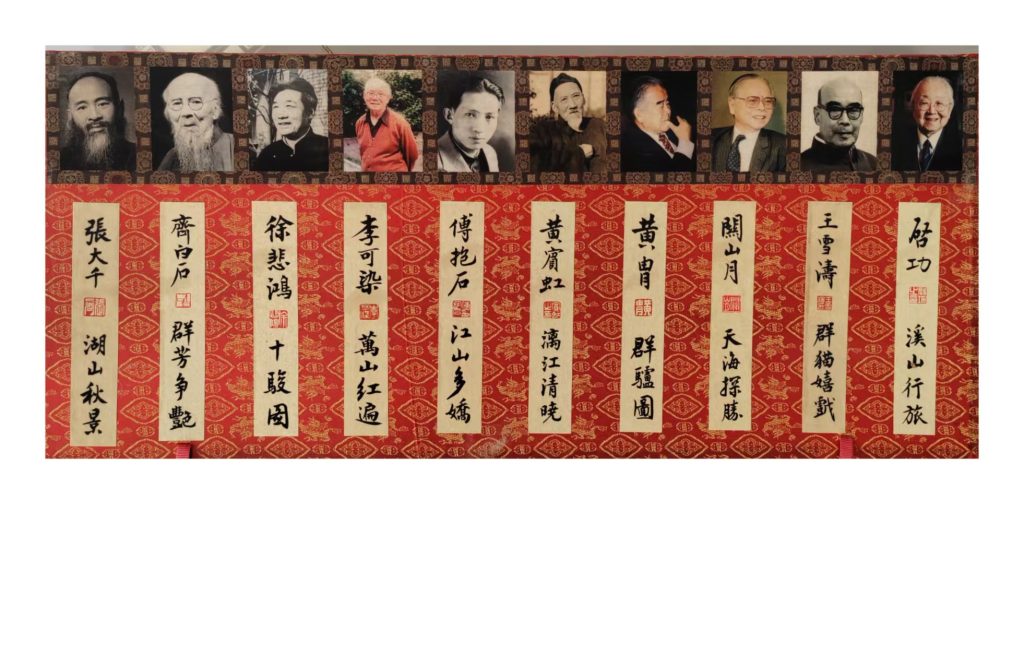 張大千 湖山秋景
齊白石 群芳争艷
徐悲鴻 十駿图
李可染 萬山红遍
傅抱石 江山多嬌
黄賓虹 漓江清曉
黄胄 群驢圖
關山月 天海探勝
王雪濤 群貓嬉戲
啟功 溪山行旅